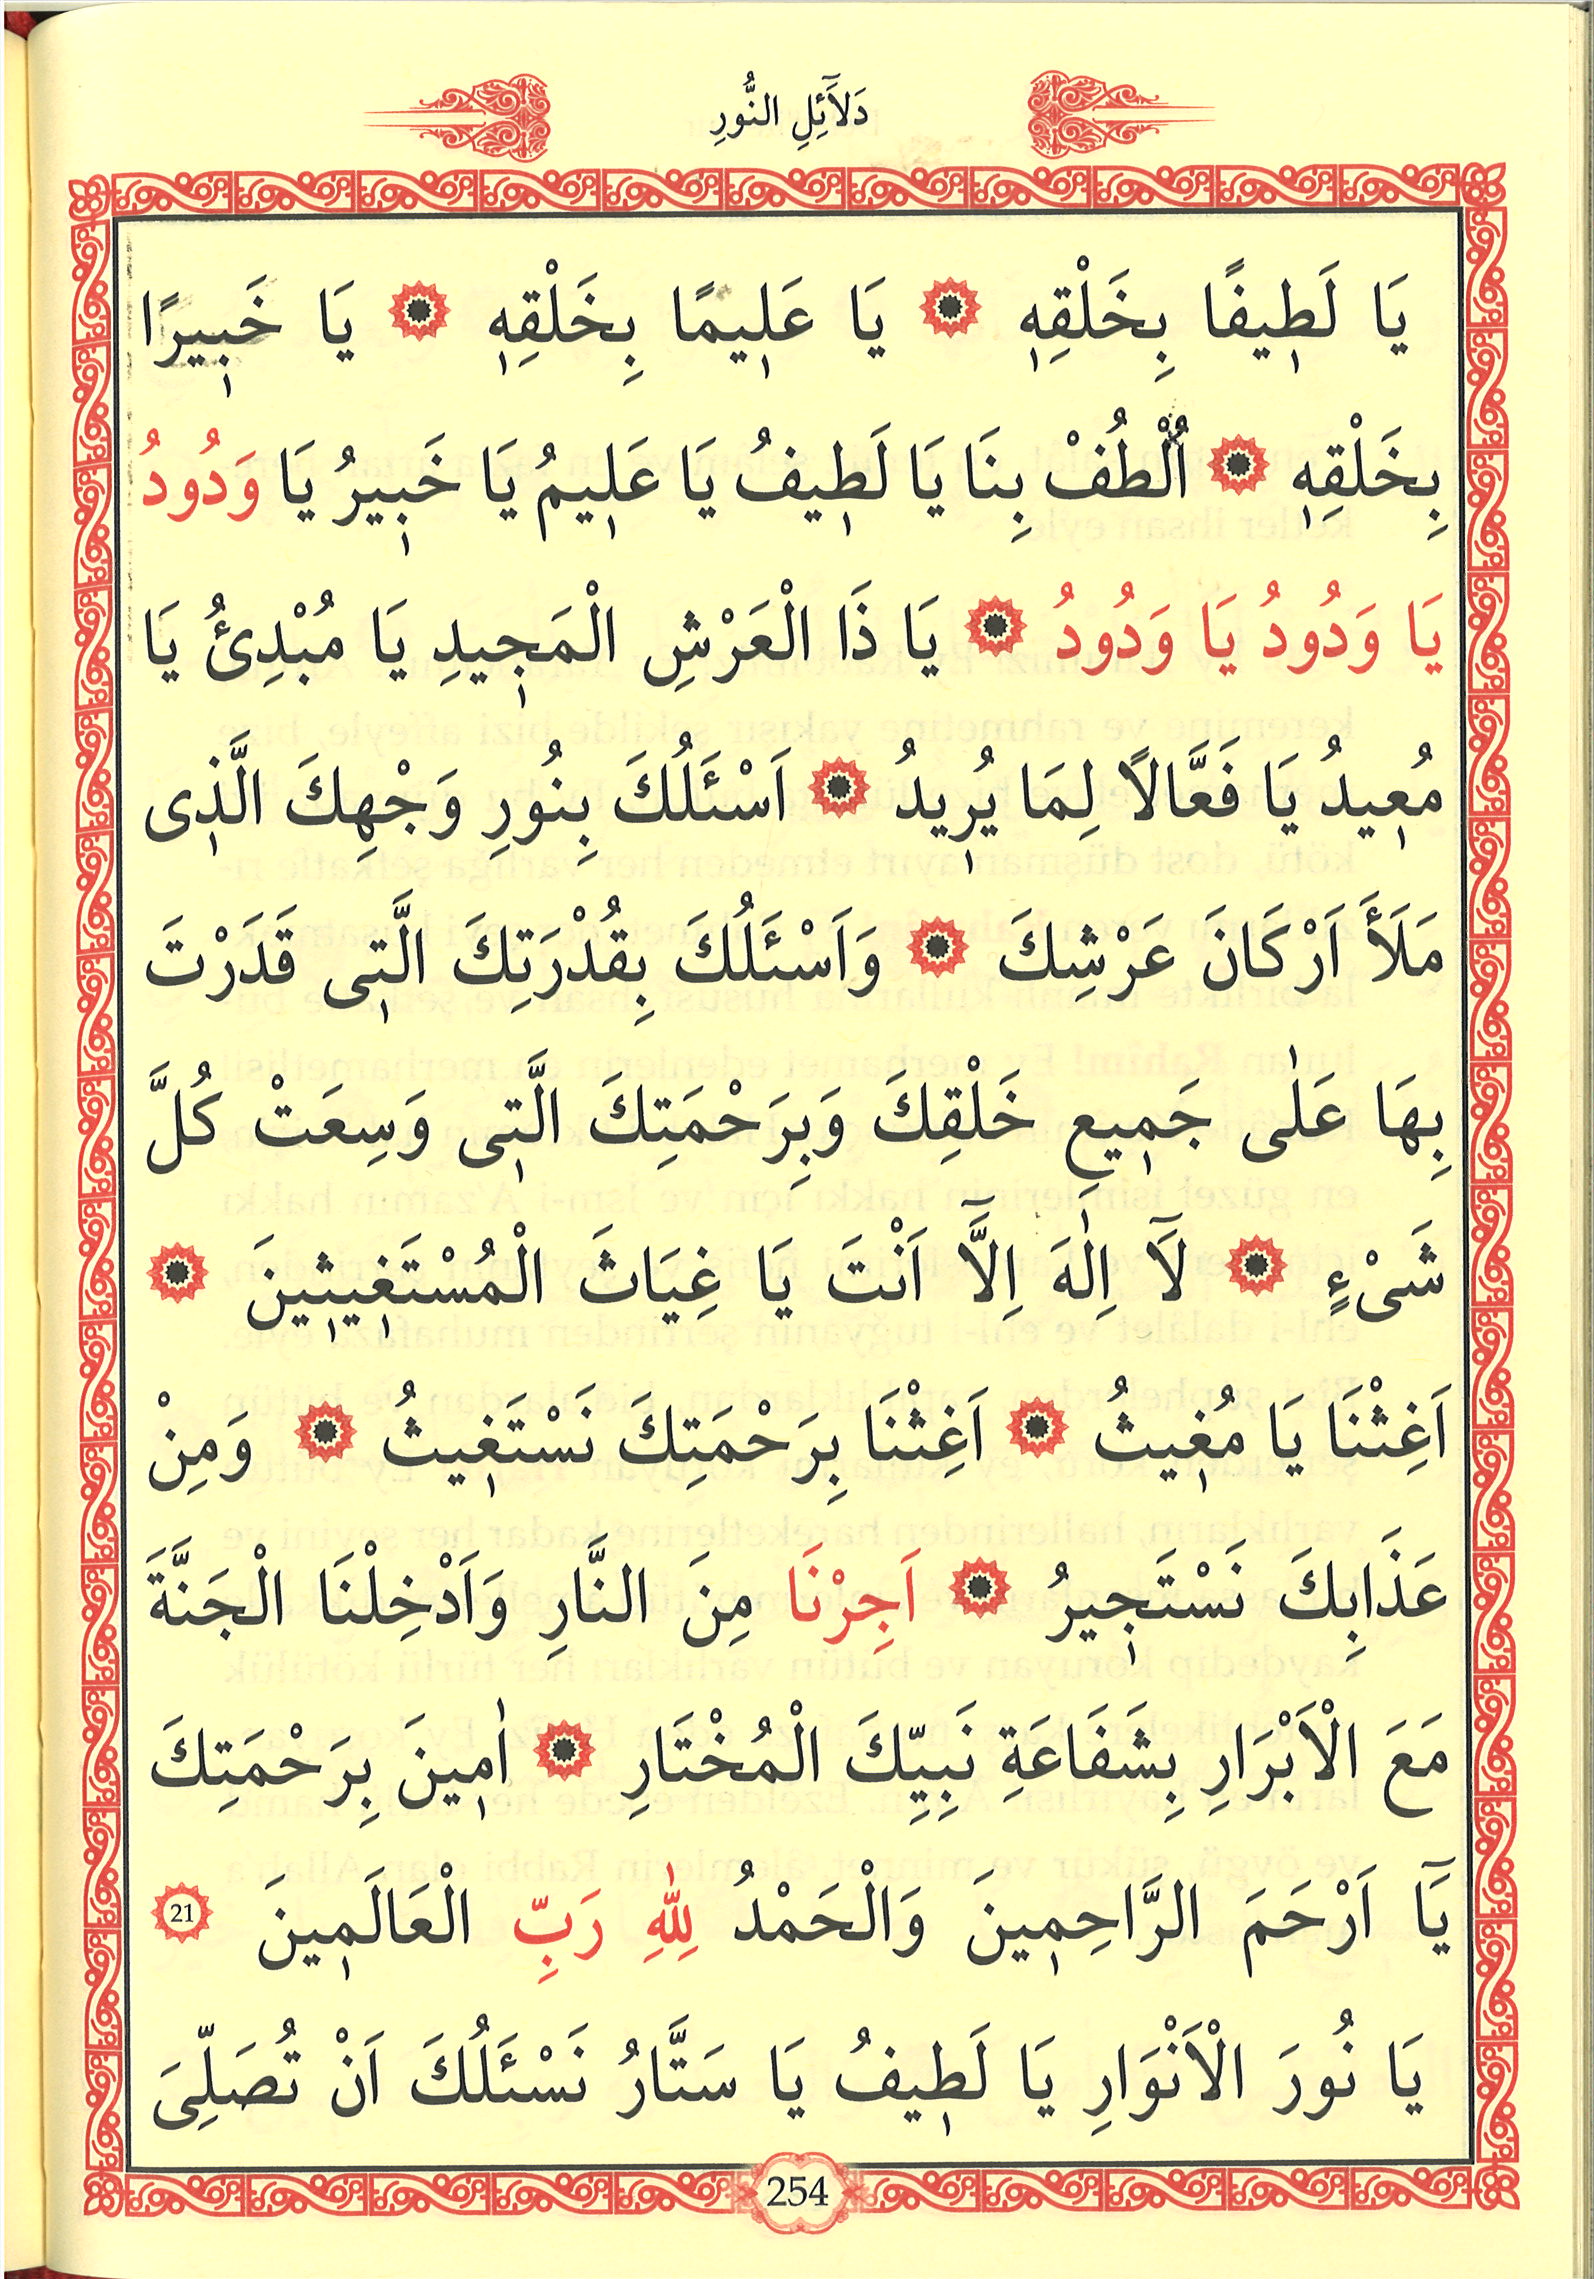 دَلَٓائِلِ النُّورِ
يَا لَطٖيفًا بِخَلْقِهٖ ۞ يَا عَلٖيمًا بِخَلْقِهٖ ۞ يَا خَبٖيرًا
بِخَلْقِهٖ ۞ اُلْطُفْ بِنَا يَا لَطٖيفُ يَا عَلٖيمُ يَا خَبٖيرُ يَا وَدُودُ
يَا وَدُودُ يَا وَدُودُ ۞ يَا ذَا الْعَرْشِ الْمَجٖيدِ يَا مُبْدِئُ يَا
مُعٖيدُ يَا فَعَّالًا لِمَا يُرٖيدُ ۞ اَسْئَلُكَ بِنُورِ وَجْهِكَ الَّذٖى
مَلَأَ اَرْكَانَ عَرْشِكَ ۞ وَاَسْئَلُكَ بِقُدْرَتِكَ الَّتٖى قَدَرْتَ
بِهَا عَلٰى جَمٖيعِ خَلْقِكَ وَبِرَحْمَتِكَ الَّتٖى وَسِعَتْ كُلَّ
شَىْءٍ ۞ لَٓا اِلٰهَ اِلَّٓا اَنْتَ يَا غِيَاثَ الْمُسْتَغٖيثٖينَ ۞
اَغِثْنَا يَا مُغٖيثُ ۞ اَغِثْنَا بِرَحْمَتِكَ نَسْتَغٖيثُ ۞ وَمِنْ
عَذَابِكَ نَسْتَجٖيرُ ۞ اَجِرْنَا مِنَ النَّارِ وَاَدْخِلْنَا الْجَنَّةَ
مَعَ الْاَبْرَارِ بِشَفَاعَةِ نَبِيِّكَ الْمُخْتَارِ ۞ اٰمٖينَ بِرَحْمَتِكَ
يَٓا اَرْحَمَ الرَّاحِمٖينَ وَالْحَمْدُ لِلّٰهِ رَبِّ الْعَالَمٖينَ 21
يَا نُورَ الْاَنْوَارِ يَا لَطٖيفُ يَا سَتَّارُ نَسْئَلُكَ اَنْ تُصَلِّىَ
254